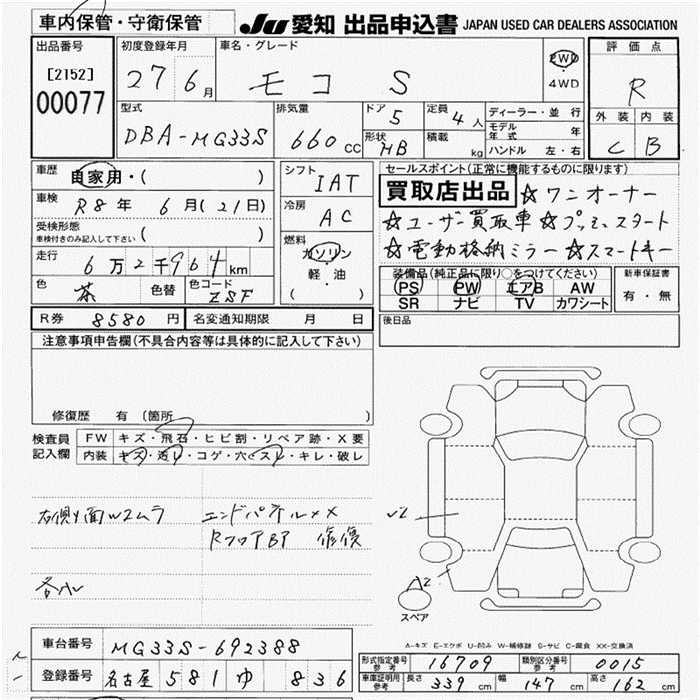 車内保管・守衛保管
JU 愛知 出品申込書 JAPAN USED CAR DEALERS ASSOCIATION
出品番号
[2152]
00077
初度登録年月
27 6月
車名・グレード
モコ S
2WD
4WD
評価点
R
外装 内装
C B
型式
DBA-MG33S
排気量
660 CC
ドア
5
形状
HB
定員
4人
積載
kg
ディーラー・並行
モデル年式 年
ハンドル 左・右
車歴
自家用・( )
車検
R8年 6月(21日)
受検形態
車検付きのみ記入して下さい ( )
走行
6万2千964km
色
茶
色替
色コード
ZSF
シフト
IAT
冷房
AC
燃料
ガソリン
軽・油
( )
セールスポイント(正常に機能するものに限ります)
買取店出品 ☆ワンオーナー
☆ユーザー買取車 ☆プッシュスタート
☆電動格納ミラー ☆スマートキー
装備品(純正品に限り○をつけてください)
PS PW エアB AW
SR ナビ TV カワシート
新車保証書
有・無
R券 8580円
名変通知期限 月 日
後日品
注意事項申告欄(不具合内容等は具体的に記入して下さい)
修復歴 有(箇所
検査員
記入欄
FW キズ・飛石・ヒビ割・リペア跡・X要
内装 キズ・汚レ・コゲ・穴・スレ・キレ・破レ
右側面W2ムラ
エンドパネルXX
RフロアBP 修復
√2
A2
スペア
A-キズ E-エクボ U-凹み W-補修跡 S-サビ C-腐食 XX-交換済
車台番号 MG33S-692388
登録番号 名古屋 581 ゆ 836
型式指定番号
参考
16709
類別区分番号
参考
0015
車庫証明用
参考
長さ 339 cm 幅 147 cm 高さ 162 cm